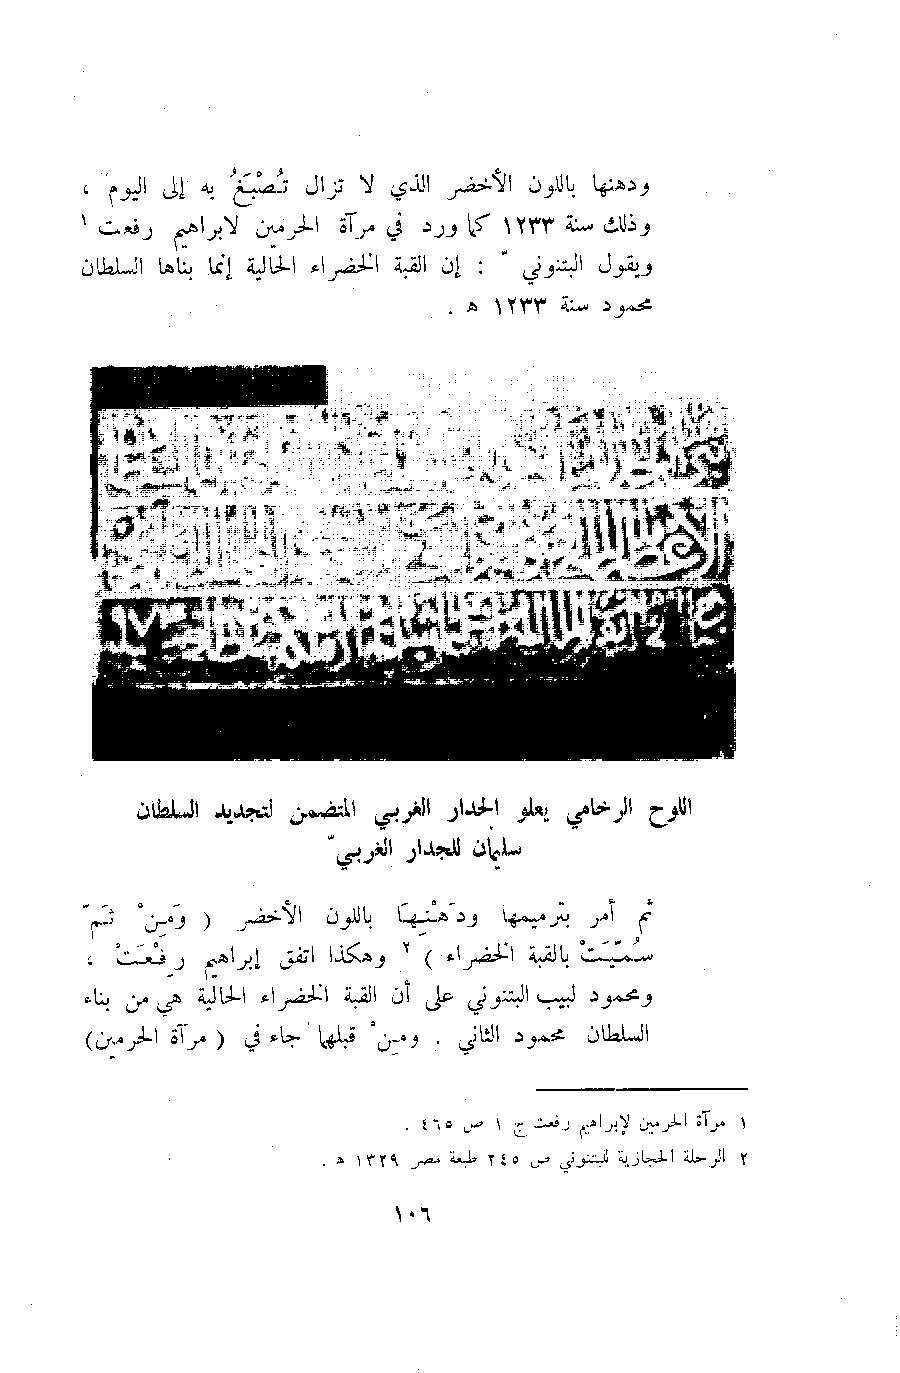 ودهنها باللون الأخضر الذي لا تزال تُصْبَغُ به إلى اليوم ،
وذلك سنة ١٢٣٣ كما ورد في مرآة الحرمين لابراهيم رفعت ١
ويقول البتنوني : إن القبة الخضراء الحالية إنما بناها السلطان
محمود سنة ١٢٣٣ ه .
اللوح الرخامي يعلو الجدار الغربي المتضمن لتجديد السلطان
سليمان للجدار الغربيّ
ثم أمر بترميمها ودَهْنِهَا باللون الأخضر ( وَمِنْ ثَمَّ
سُمِّيَتْ بالقبة الخضراء ) ٢ وهكذا اتفق إبراهيم رِفْعَتْ ،
ومحمود لبيب البتنوني على أن القبة الخضراء الحالية هي من بناء
السلطان محمود الثاني . ومِنْ قبلهما جاء في ( مرآة الحرمين)
١ مرآة الحرمين لإبراهيم رفعت ج ١ ص ٤٦٥ .
٢ الرحلة الحجازية للبتنوني ص ٢٤٥ طبعة مصر ١٣٢٩ ه .
١٠٦